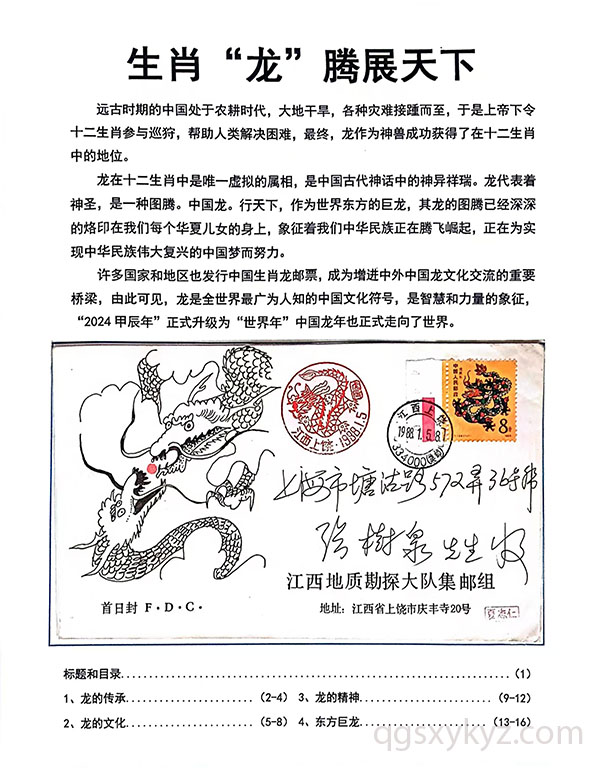 生肖“龙”腾展天下
远古时期的中国处于农耕时代，大地干旱，各种灾难接踵而至，于是上帝下令
十二生肖参与巡狩，帮助人类解决困难，最终，龙作为神兽成功获得了在十二生肖
中的地位。
龙在十二生肖中是唯一虚拟的属相，是中国古代神话中的神异祥瑞。龙代表着
神圣，是一种图腾。中国龙。行天下，作为世界东方的巨龙，其龙的图腾已经深深
的烙印在我们每个华夏儿女的身上，象征着我们中华民族正在腾飞崛起，正在为实
现中华民族伟大复兴的中国梦而努力。
许多国家和地区也发行中国生肖龙邮票，成为增进中外中国龙文化交流的重要
桥梁，由此可见，龙是全世界最广为人知的中国文化符号，是智慧和力量的象征，
“2024 甲辰年”正式升级为“世界年”中国龙年也正式走向了世界。
江西上饶·1988.1.5
江西上饶
1988.1.5.8
334000
中国人民邮政
8分
上海市塘沽路572弄36号
张树泉先生收
江西地质勘探大队集邮组
首日封 F·D·C·
地址：江西省上饶市庆丰寺20号
标题和目录......(1)
1、龙的传承......(2-4) 3、龙的精神......(9-12)
2、龙的文化......(5-8) 4、东方巨龙......(13-16)
qgsxykyz.com